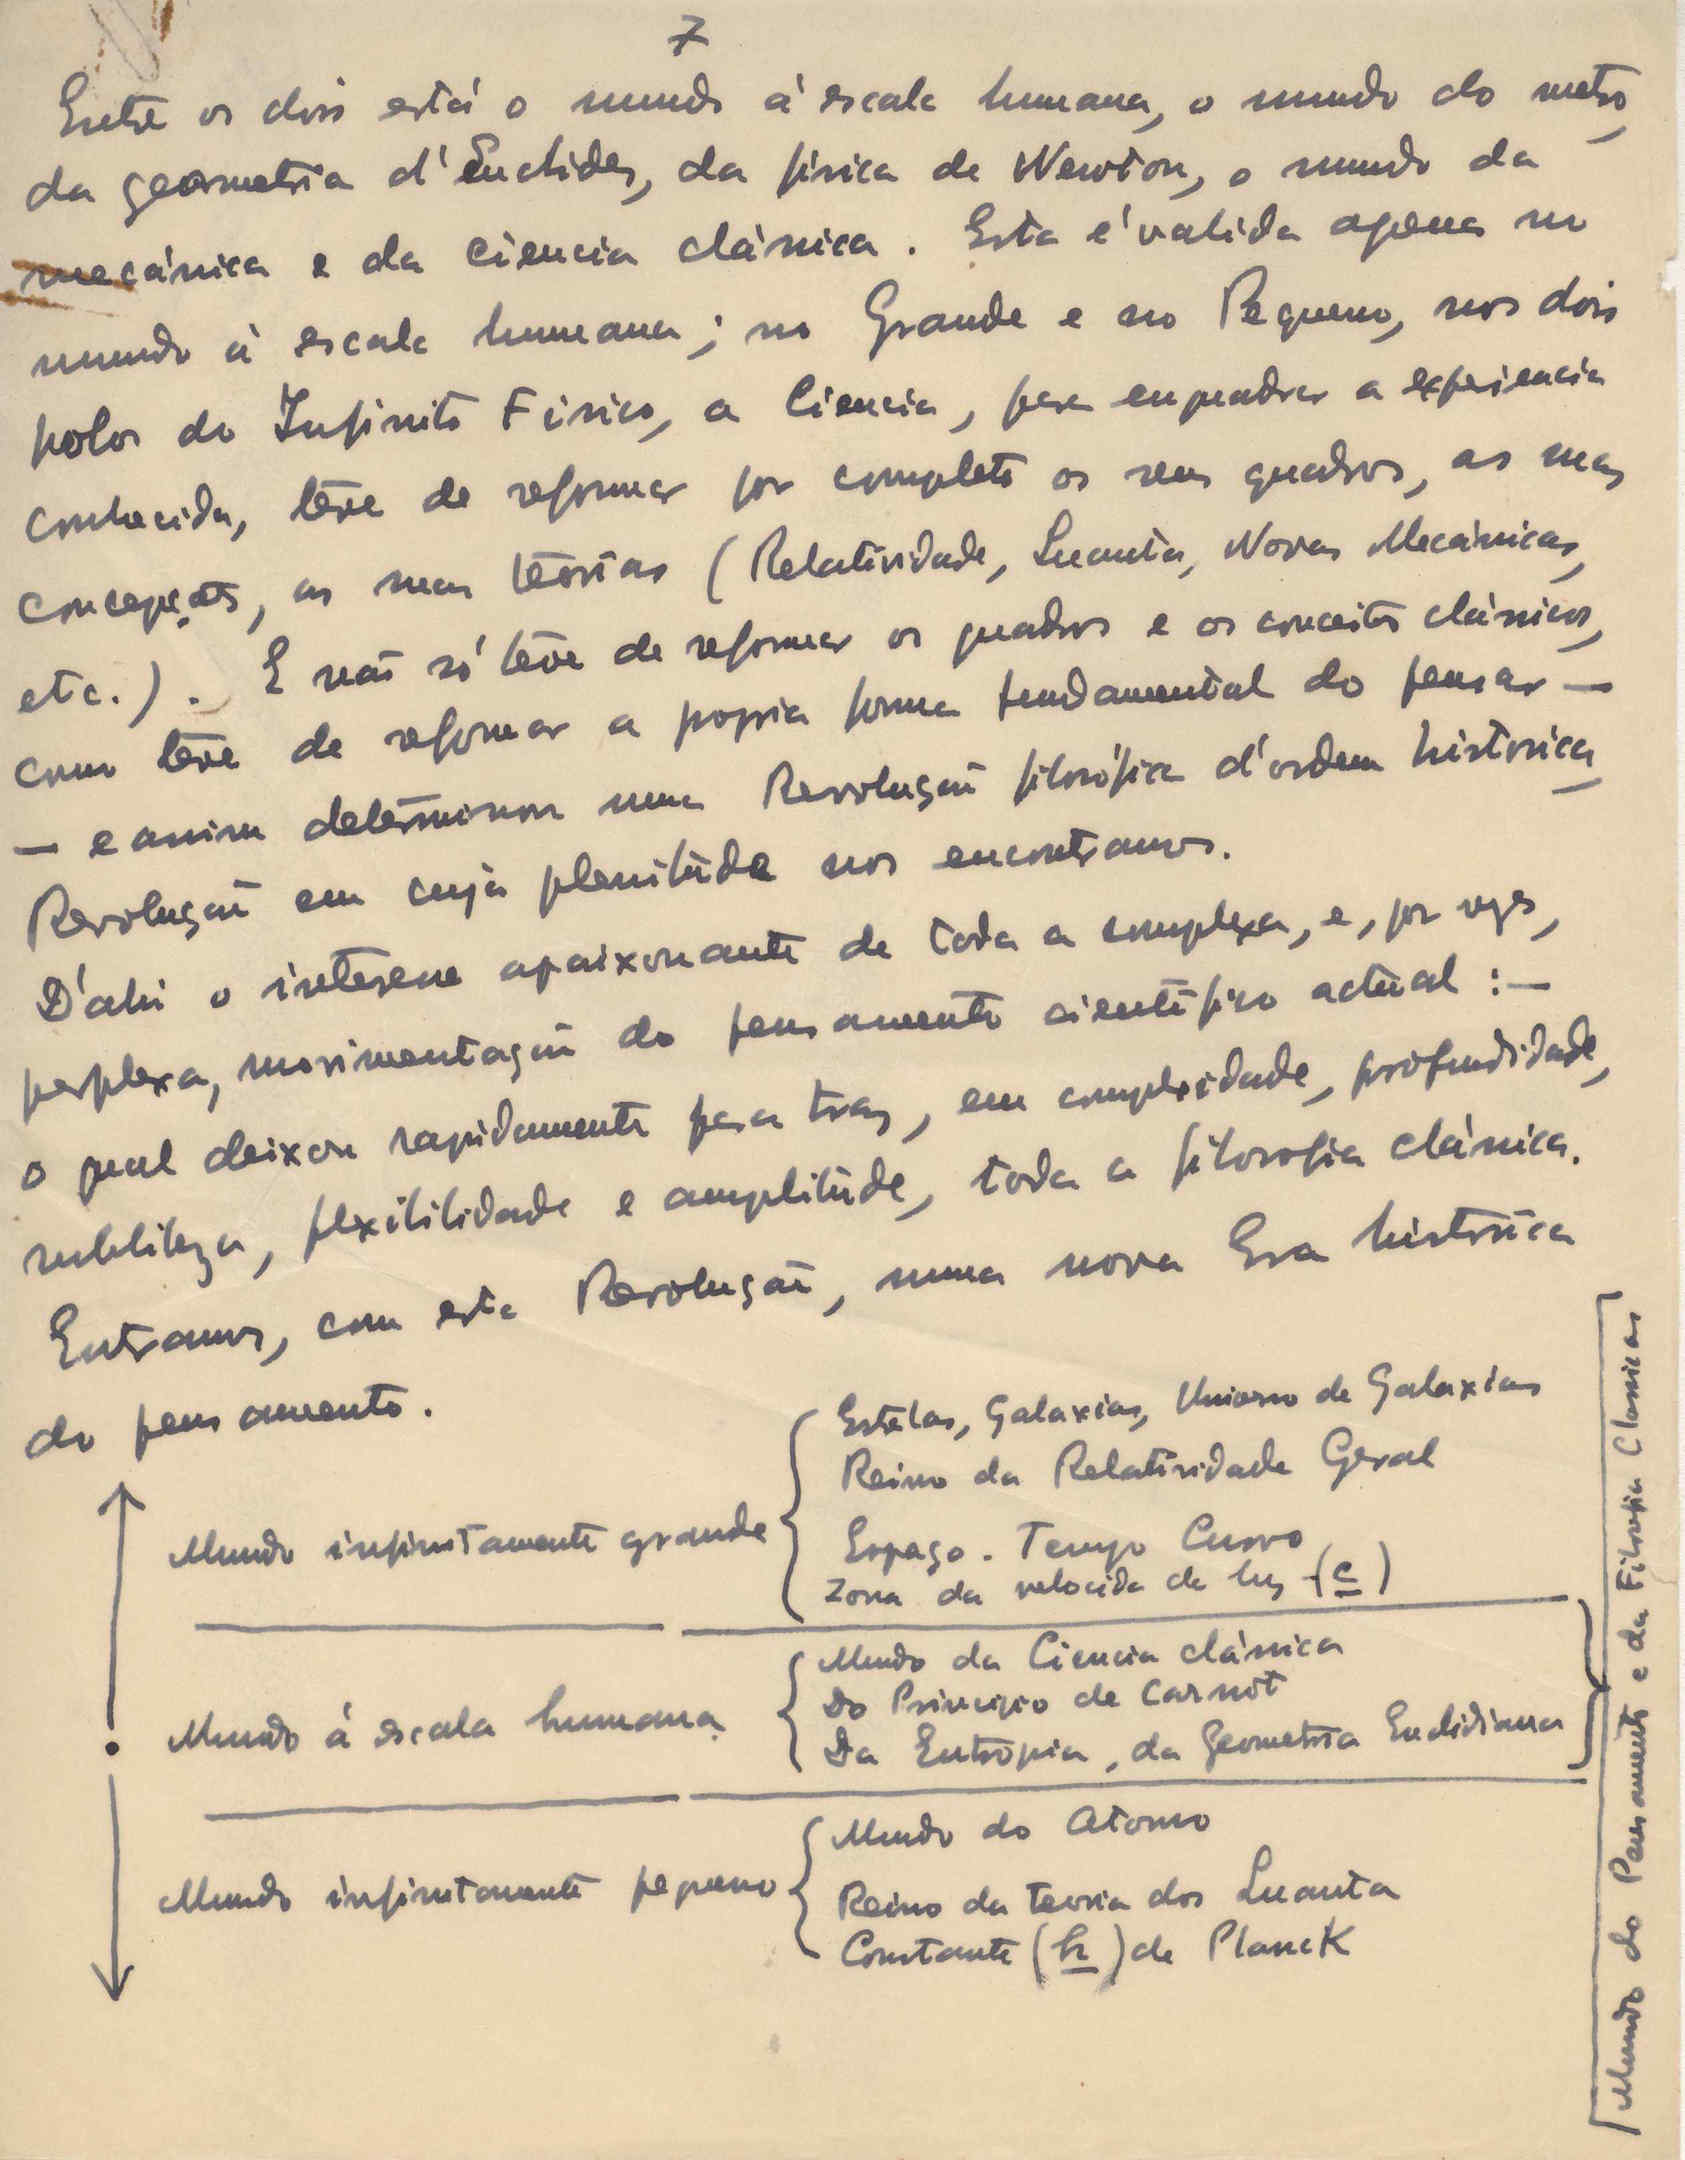 7
Entre os dois está o mundo á escala humana, o mundo do metro,
da geometria d'Euclides, da fisica de Newton, o mundo da
mecánica e da ciencia clássica. Esta é valida apenas no
mundo á escala humana; no Grande e no Pequeno, nos dois
polos do Infinito Fisico, a Ciencia, para enquadrar a experiencia
conhecida, teve de reformar por completo os seus quadros, as suas
concepções, as suas teorias (Relatividade, Quanta, Novas Mecánicas,
etc.). E não só teve de reformar os quadros e os conceitos clássicos,
como teve de reformar a propria forma fundamental do pensar —
— e assim determinou uma Revolução filosófica d'ordem historica,
Revolução em cuja plenitude nos encontramos.
D'ahi o interesse apaixonante de toda a complexa, e, por vezes,
perplexa, movimentação do pensamento cientifico actual :—
o qual deixou rapidamente para traz, em complexidade, profundidade,
subtileza, flexibilidade e amplitude, toda a filosofia clássica.
Entramos, com esta Revolução, numa nova Era historica
do pensamento.
Mundo infinitamente grande
Estrelas, Galaxias, Universo de Galaxias
Reino da Relatividade Geral
Espaço - Tempo Curvo
Zona da velocida de luz - (c)
Mundo á escala humana
Mundo da Ciencia clássica
Do Principio de Carnot
Da Entropia, da Geometria Euclidiana
Mundo infinitamente pequeno
Mundo do Atomo
Reino da teoria dos Quanta
Constante (h) de Planck
Mundo do Pensamento e da Filosofia Classicas